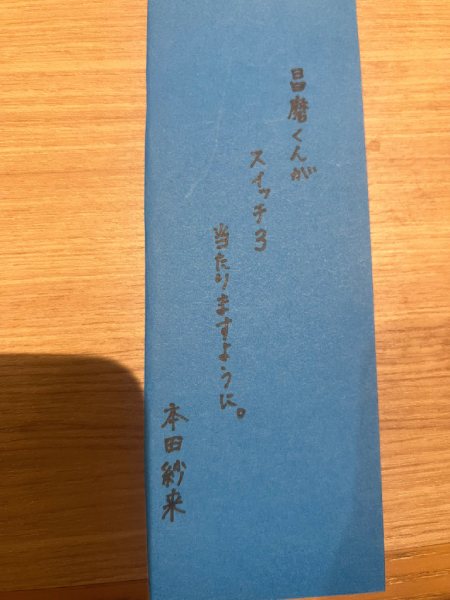 昌磨くんが
スイッチ3
当たりますように。
本田紗来